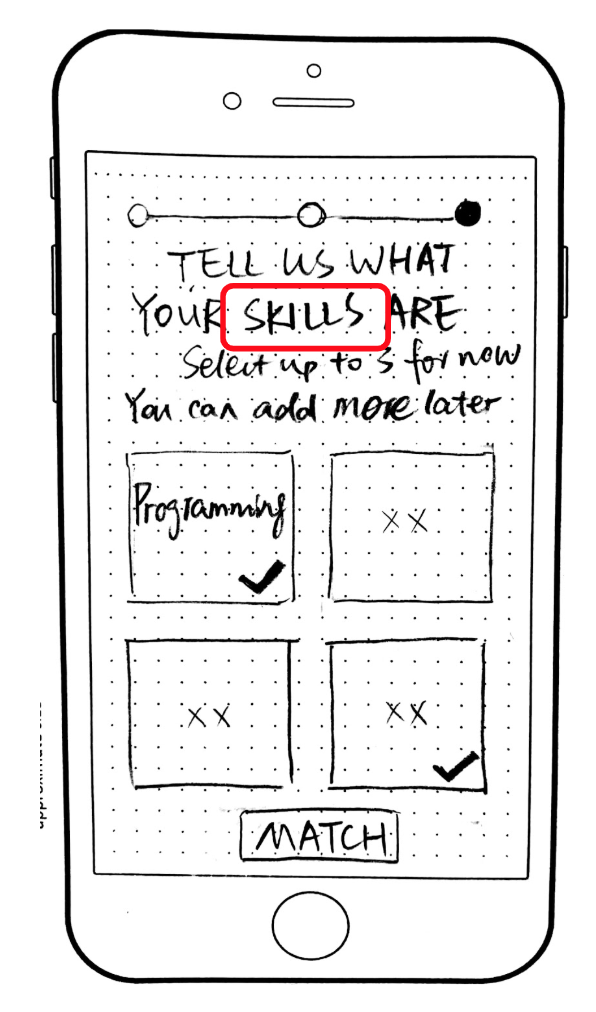 TELL US WHAT
YOUR SKILLS ARE
Select up to 3 for now
You can add more later
Programming
XX
XX
XX
MATCH